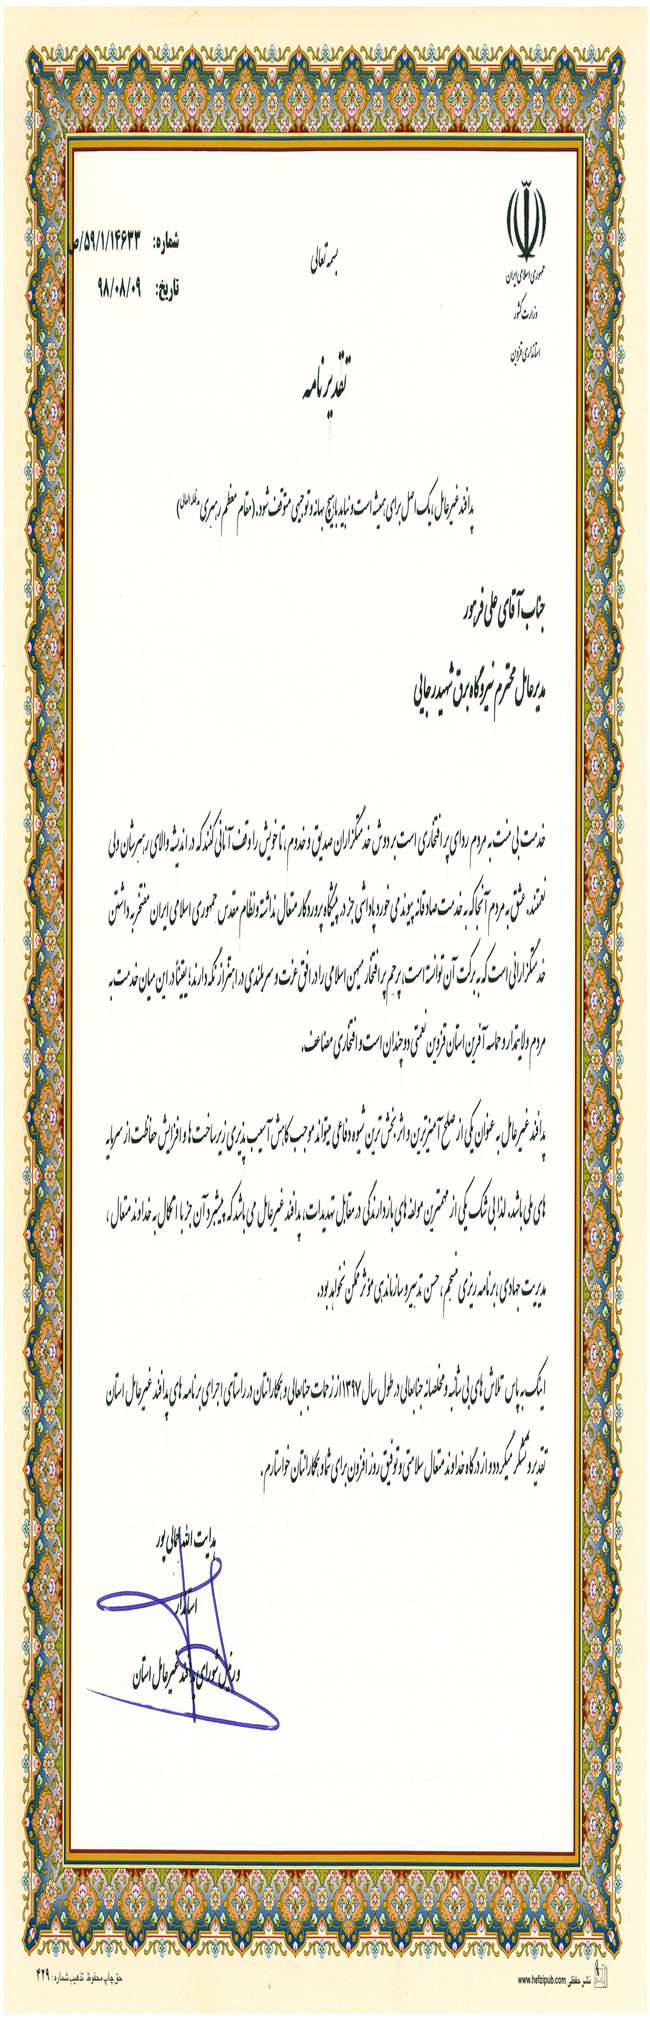 جمهوری اسلامی ایران
وزارت کشور
استانداری قزوین
بسمه تعالی
شماره: ۵۹/۱/۱۴۶۳۳/ص
تاریخ: ۹۸/۰۸/۰۹
تقدیرنامه
پدافند غیرعامل، یک اصل برای همیشه است و نباید با هیچ بهانه و توجیهی متوقف شود. (مقام معظم رهبری مدظله العالی)
جناب آقای علی فرهور
مدیرعامل محترم نیروگاه برق شهید رجایی
خدمت بی منت به مردم ردای پر افتخاری است بر دوش خدمتگزاران صدیق و خدوم، تا خویش را وقف آنانی کنند که در اندیشه والای رهبرشان ولی
نعمتند. عشق به مردم آنجا که به خدمت صادقانه پیوند می خورد پاداشی جز در پیشگاه پروردگار متعال نداشته و نظام مقدس جمهوری اسلامی ایران مفتخر به داشتن
خدمتگزارانی است که به برکت آن توانسته است، پرچم پر افتخار میهن اسلامی را در افق عزت و سربلندی در اهتزاز نگه دارند؛ یقیناً در این میان خدمت به
مردم ولایتمدار و حماسه آفرین استان قزوین نعمتی دو چندان است و افتخاری مضاعف.
پدافند غیرعامل به عنوان یکی از صلح آمیزترین و اثربخش ترین شیوه دفاعی میتواند موجب کاهش آسیب پذیری زیرساخت ها و افزایش حفاظت از سرمایه
های ملی باشد. لذا بی شک یکی از مهمترین مولفه های بازدارندگی در مقابل تهدیدات، پدافند غیرعامل می باشد که پیشبرد آن جز با اتکال به خداوند متعال،
مدیریت جهادی، برنامه ریزی منسجم، حسن تدبیر و سازماندهی مؤثر ممکن نخواهد بود.
اینک به پاس تلاش های بی شائبه و مخلصانه جنابعالی در طول سال ۱۳۹۷ از زحمات جنابعالی و همکارانتان در راستای اجرای برنامه های پدافند غیرعامل استان
تقدیر و تشکر میگردد و از درگاه خداوند متعال سلامتی و توفیق روز افزون برای شما و همکارانتان خواستارم.
هدایت الله جمالی پور
استاندار
و رئیس شورای پدافند غیرعامل استان
نشر حفظی www.hefzipub.com
حق چاپ محفوظ تذهیب شماره: ۴۲۹